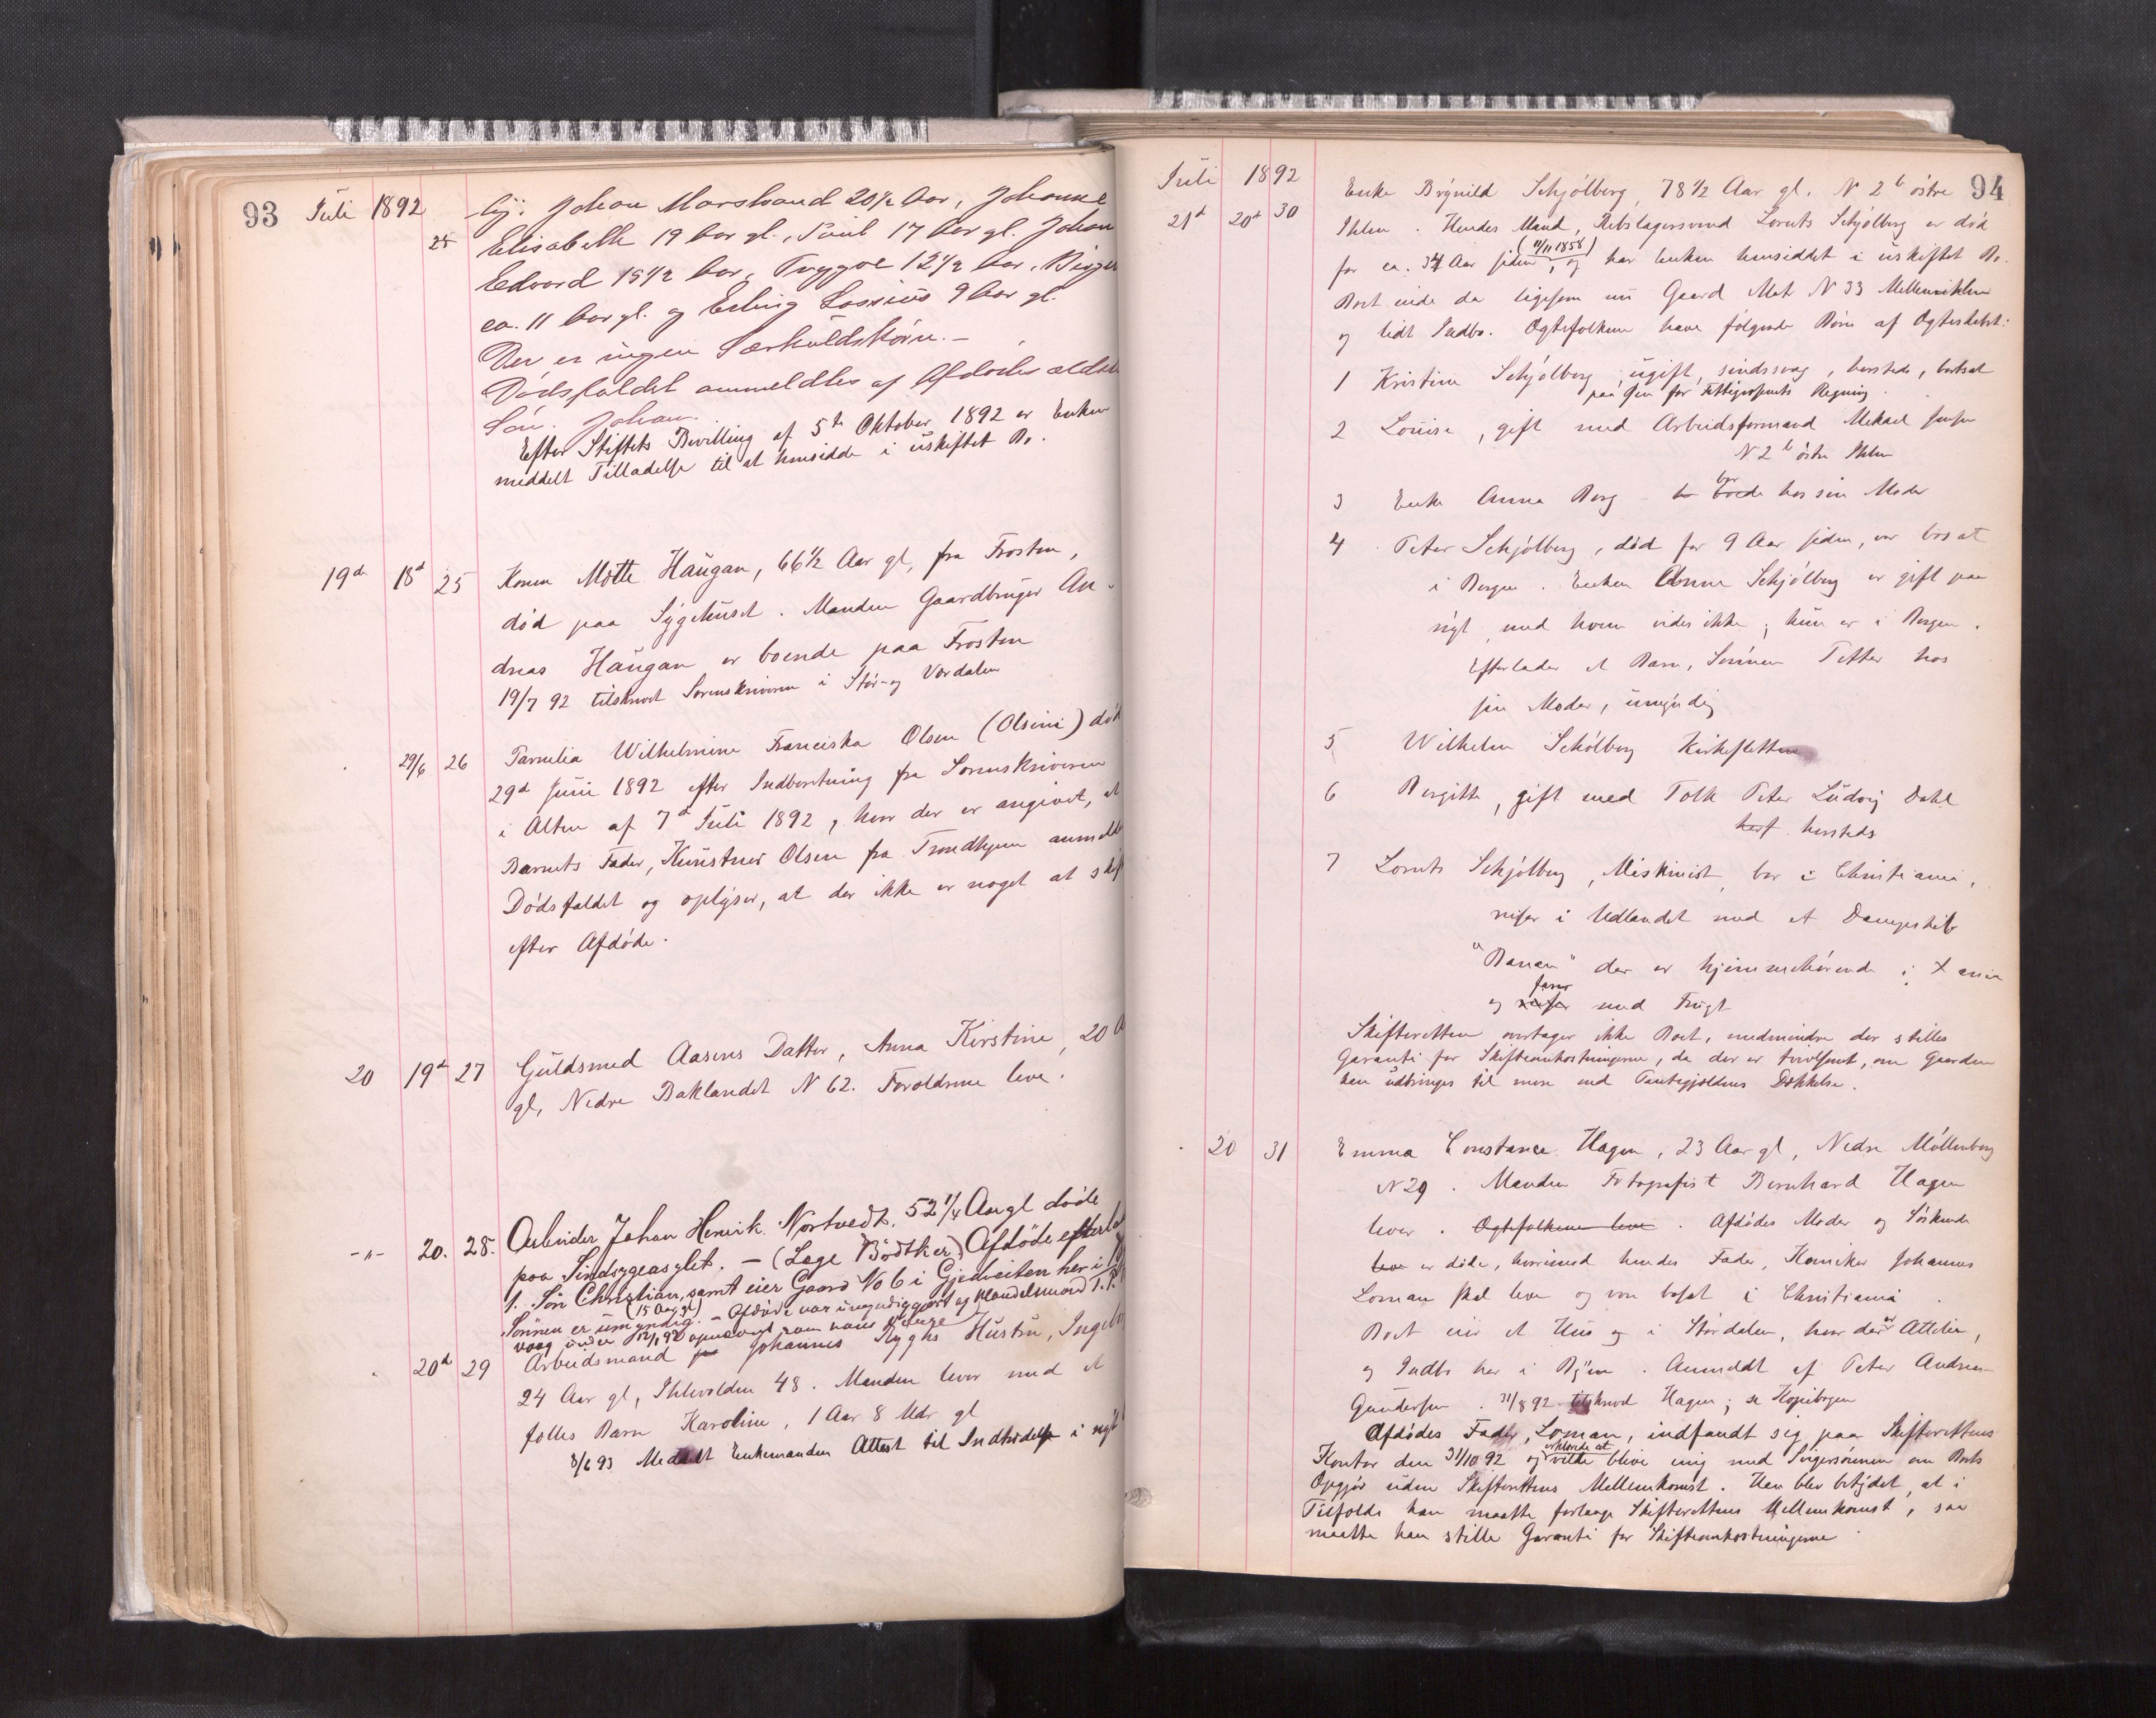 93 Juli 1892
by: Johan Marstrand 20 1/2 Aar, Johanne
25 Elisabeth 19 Aar gl., Paul 17 Aar gl. Johan
Edvard 15 1/2 Aar, Tryggve 12 1/2 Aar, Birger
ca. 11 Aar gl. og Erling Lossius 9 Aar gl.
Der er ingen Særkuldsbörn. –
Dödsfaldet anmeldtes af Afdödes ældste
Sön Johan.
Efter Stiftets Bevilling af 5te Oktober 1892 er Enken
meddelt Tilladelse til at hensidde i uskiftet Bo.
19de 18d 25 Konen Motte Haugan, 66 1/2 Aar gl, fra Frosten,
död paa Sygehuset. Manden Gaardbruger An-
dreas Haugan er boende paa Frosten
19/7 92 tilskrevet Sorenskriveren i Stör- og Værdalen
29/6 26 Parnelia Wilhelmine Franciska Olsen (Olsini) död
29d Juni 1892 efter Indberetning fra Sorenskriveren
i Alten af 7d Juli 1892, hvor der er angivet, at
Barnets Fader, Kunstner Olsen fra Trondhjem anmeldte
Dödsfaldet og oplyser, at der ikke er noget at skifte
efter Afdöde.
20 19de 27 Guldsmed Aasens Datter, Anna Kirstine, 20 A
gl, Nedre Baklandet N 62. Foreldrene leve.
-"- 20. 28. Arbeider Johan Henrik Nortvedt, 52 1/4 Aar gl döde
paa Sindsygeasylet. – (Læge Bödtker) Afdöde efterlod
1. Sön Christian, samt eier Gaard No 6 i Gjedveiten her i
(15 Aar gl)
Sönnen er umyndig. – Afdöde var umyndiggjort og Handelsmand T. P.
vaag under 12/1 92 opnævnt som hans Værge
20d 29 Arbeidsmand Johannes Ryghs Hustru, Ingeb
24 Aar gl, Ihlevolden 48. Manden lever med et
fælles Barn Karoline, 1 Aar 8 Mdr gl
8/6 93 Meddelt Enkemanden Attest til Indtrædelse i nyt
Juli 1892 94
Enke Brynild Schjölberg, 78 1/2 Aar gl. N 2 b östre
21d 20d 30 Ihlen. Hendes Mand, Rebslagersvend Lorents Schjölberg er död
(11/11 1858)
for ca. 34 Aar siden, og har Enken hensiddet i uskiftet Bo.
Boet eiede da ligesom nu Gaard Mat N 33 Mellemihlen
og lidt Indbo. Ægtefolkene have fölgende Börn af Ægteskabet:
1 Kristine Schjölberg ugift, sindssvag, hersteds, bortsat
paa for Fattigvæsenets Regning.
2 Louise, gift med Arbeidsformand Mekael Jensen
N 2 b östre Ihlen
3 Enke Anna Berg – bor boede hos sin Moder
4 Peter Schjölberg, död for 9 Aar siden, var bosat
i Bergen. Enken Anne Schjölberg er gift paa
nyt, med hvem vides ikke; hun er i Bergen.
Efterlader et Barn, Sönnen Petter hos
sin Moder, umyndig
5 Wilhelm Schölberg Kirkesletten
6 Bergitte, gift med Tolk Peter Ludvig Dahl
hersteds
7 Lorents Schjölberg, Maskinist, bor i Christiania,
reiser i Udlandet med et Dampskib
"Banan" der er hjemmehörende i Xania
farer
og reiser med Frugt
Skifteretten overtager ikke Boet, medmindre der stilles
Garanti for Skifteomkostningerne, da der er tvivlsomt, om Gaarden
kan udbringes til mere end Pantegjældens Dækkelse.
20 31 Emma Constance Hagen, 23 Aar gl, Nedre Möllenberg
N 29. Manden Fotografist Bernhard Hagen
lever. Ægtefolkene leve. Afdödes Moder og Söskende
leve er döde, hvorimod hendes Fader, Johannes
Loman skal leve og være bosat i Christiania.
Boet eier et Hus og i Stördalen, hvor der er Attelier,
og Indbo her i Byen. Anmeldt af Peter Andreas
Gundersen. 31/8 92 tilskrevet Hagen; se Kopibogen
Afdödes Fader, Loman, indfandt sig paa Skifterettens
erklærede at
Kontor den 31/10 92 og vilde blive enig med Svigersönnen om Boets
Opgjör uden Skifterettens Mellemkomst. Han blev betydet, at i
Tilfælde han maatte forlange Skifterettens Mellemkomst, saa
maatte han stille Garanti for Skifteomkostningerne.